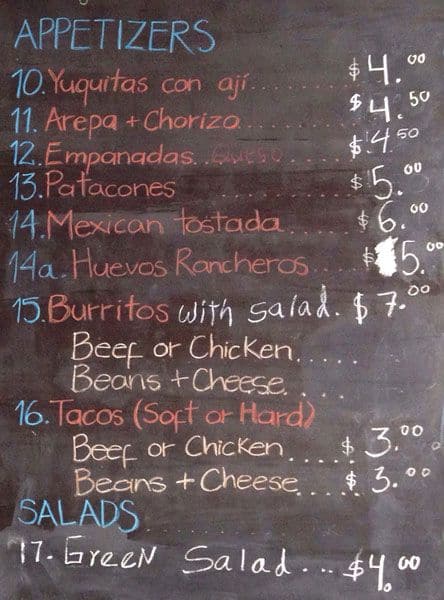 APPETIZERS
10. Yuquitas con ají......... $4.00
11. Arepa + Chorizo.......... $4.50
12. Empanadas queso....... $4.50
13. Patacones ............. $5.00
14. Mexican tostada....... $6.00
14a. Huevos Rancheros.... $5.00
15. Burritos with salad. $7.00
Beef or Chicken.....
Beans + Cheese....
16. Tacos (Soft or Hard)
Beef or Chicken.... $3.00
Beans + Cheese..... $3.00
SALADS
17. Green Salad... $4.00